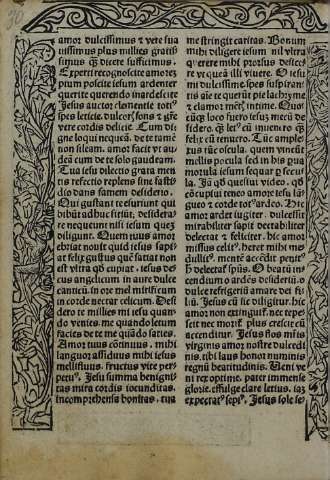 30
amor dulcissimus ⁊ vere sua
uissimus plus millies gratis
simus q̄ȝ dicere sufficimus.
Experti recognoscite amorez
prum poscite iesum ardenter
querite querendo inardescite
Jesus auctor clementie toti⁹
spes leticie, dulcor̄ fons ⁊ gr̄e
vere cordis delicie. Cum di
gne loqui neq̄o. de te tamē
non sileam. amor facit vt au
deā cum de te solo gaudeam.
Tua iesu dilectio grata men
tis refectio replens sine fasti
dio dans famem desiderio.
Qui gustant te esuriunt qui
bibūt adhuc sitiūt, desidera
re nequeunt nisi iesum quez
diligunt. Quem tuus amor
ebriat nouit quid iesus sapi
at felix gustus quē satiat non
est vltra qd̄ cupiat, iesus de
cus angelicum in aure dulce
canticū. in ore mel mirificum
in corde nectar celicum. Desi
dero te millies mi iesu quan
do venies. me quando letum
facies de te me quādo saties.
Amor tuus cōtinuus. mihi
languor assiduus mihi iesus
mellifluus. fructus vite per
petu⁹. Jesu summa benigni
tas mira cordis iocunditas,
incomprehensa bonitas, tua
me stringit caritas. Bonum
mihi diligere iesum nil vltra
q̄rere mihi prorsus defice
re vt queā illi viuere. O iesu
mi dulcissime. spes suspiran
tis aīe te querūt pie lachryme
⁊ clamor mēt{ intime. Quo
cūq̄ȝ loco fuero iesuȝ mecū de
sidero. q̄ȝ let⁹ cū inuenero q̄ȝ
felix cū tenuero. Tūc amplex
us tūc oscula. quem vincūt
mellis pocula sed in his parua
morula iesum sequar p̄ secu
la. Jā qd̄ quesiui video, qd̄
cōcupiui teneo amore iesu lan
gueo ⁊ corde tot⁹ ardeo. Hic
amor ardet iugiter. dulcessit
mirabiliter sapit delectabiliter
delectat ⁊ feliciter. hic amor
missus celit⁹. heret mihi me
dullit⁹. mentē accēdit penit⁹
h̄ delectat{ spūs. O beatū in
cendium o ardēs desideriū. o
dulce refrigeriū amare dei fi
liū. Jesus cū sic diligitur. hic
amor non extinguit{. nec tepe
scit nec morit{. plus crescit cū
accenditur. Jesus flos mr̄is
virginis amor nostre dulcedi
nis, tibi laus honor numinis
regnū beatitudinis. Ueni ve
ni rex optime. pater immense
glorie. effulge clare letius. iaȝ
expectat⁹ sepi⁹. Jesus sole se/